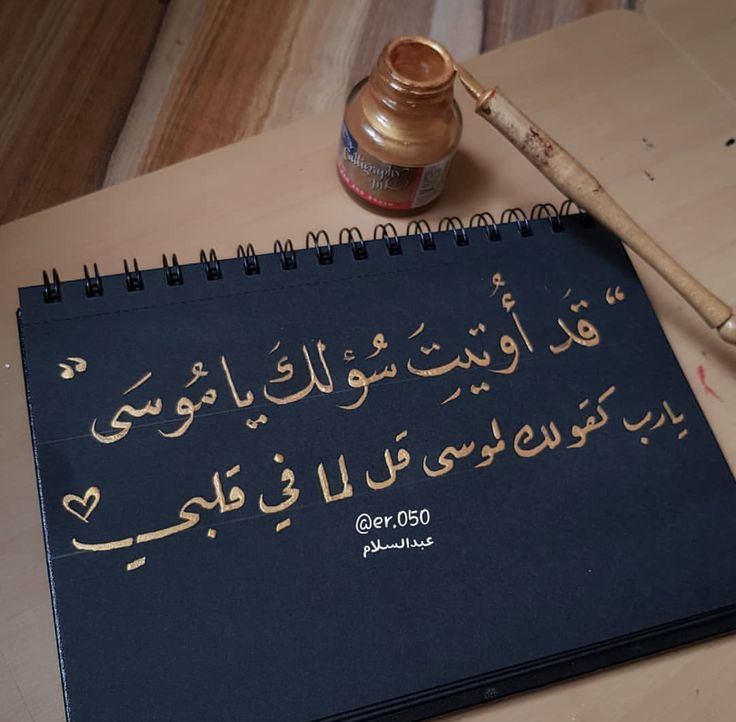 Calligraphy
Ink
“قَد أُوتِيتَ سُؤلَكَ يا مُوسَى”
يارب كقولك لموسى قل لما في قلبي ♡
@er.050
عبدالسلام